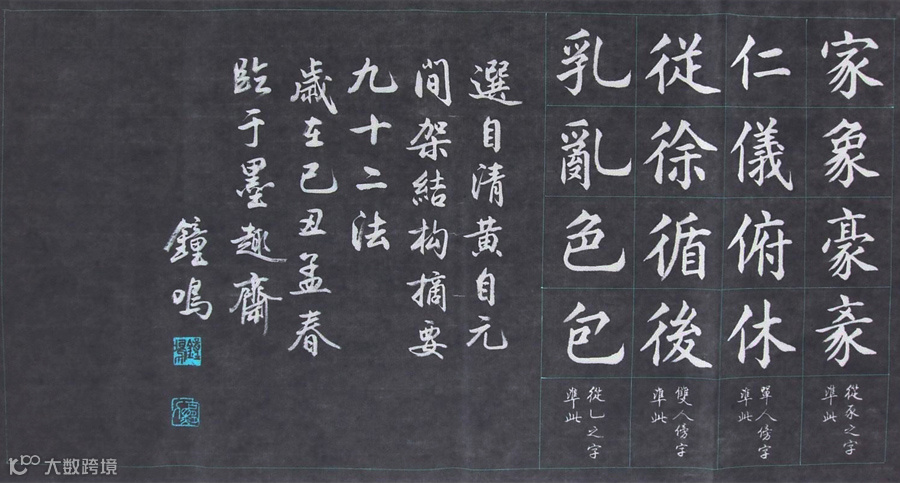 家象豪
從豕之字
準此
仁儀俯休
單人傍字
準此
從徐循後
雙人傍字
準此
乳亂色包
從乚之字
準此
選自清黄自元
間架結构摘要
九十二法
歲在己丑孟春
臨于墨趣齋
鐘鳴
大数跨境